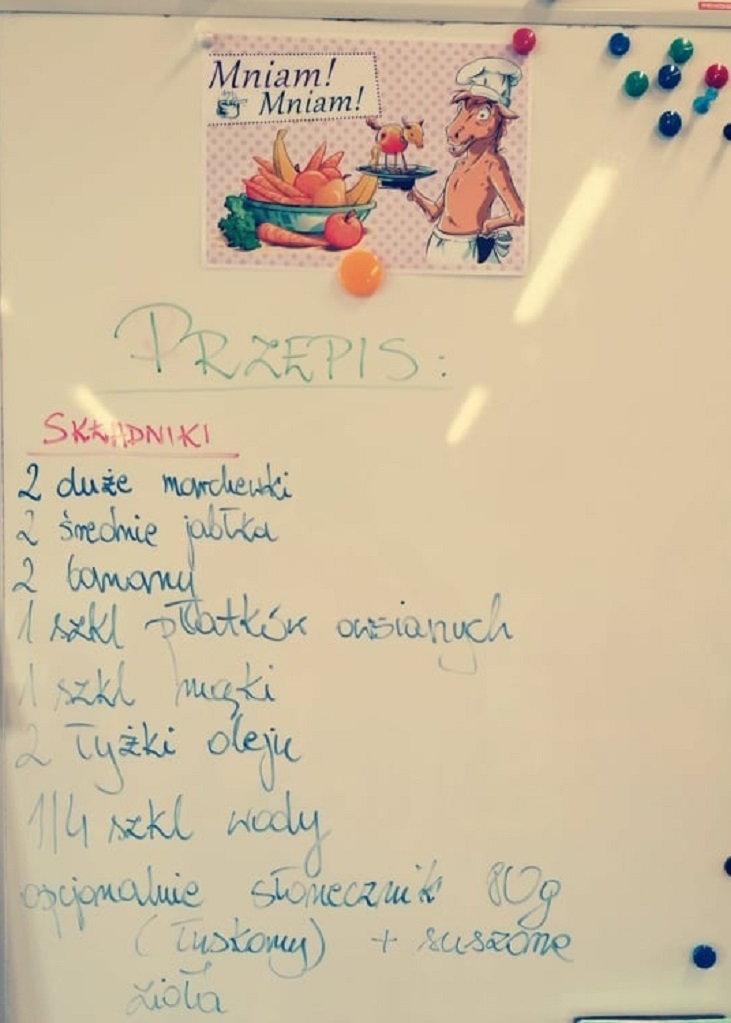 Mniam!
Mniam!
PRZEPIS:
SKŁADNIKI
2 duże marchewki
2 średnie jabłka
2 banany
1 szkl płatków owsianych
1 szkl mąki
2 łyżki oleju
1/4 szkl wody
opcjonalnie słonecznik 80g
(łuskany) + suszone
zioła